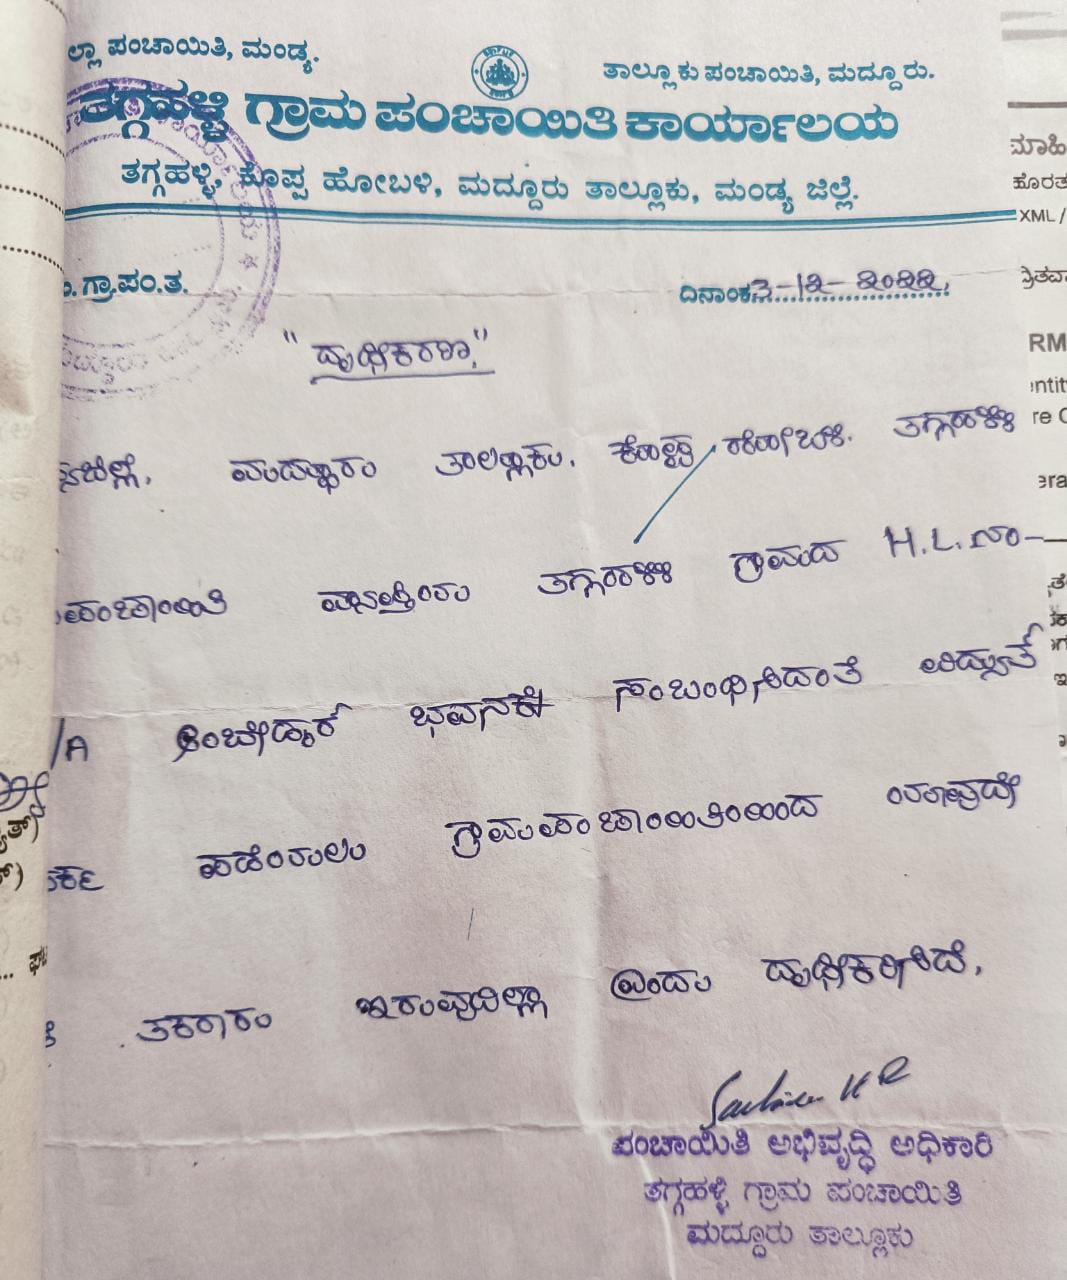 ಲ್ಲಾ ಪಂಚಾಯಿತಿ, ಮಂಡ್ಯ.
ತಾಲ್ಲೂಕು ಪಂಚಾಯಿತಿ, ಮದ್ದೂರು.
ತಗ್ಗಹಳ್ಳಿ ಗ್ರಾಮ ಪಂಚಾಯಿತಿ ಕಾರ್ಯಾಲಯ
ತಗ್ಗಹಳ್ಳಿ, ಕೊಪ್ಪ ಹೋಬಳಿ, ಮದ್ದೂರು ತಾಲ್ಲೂಕು, ಮಂಡ್ಯ ಜಿಲ್ಲೆ.
ಗ್ರಾ.ಪಂ.ತ.
ದಿನಾಂಕ 3-12-2022,
"ದೃಢೀಕರಣ"
ಜಿಲ್ಲೆ, ಮದ್ದೂರು ತಾಲ್ಲೂಕು, ಕೊಪ್ಪ ಹೋಬಳಿ. ತಗ್ಗಹಳ್ಳಿ
ಪಂಚಾಯಿತಿ ತಗ್ಗಹಳ್ಳಿ ಗ್ರಾಮದ H.L.ನಂ-
/A ಅಂಬೇಡ್ಕರ್ ಭವನಕ್ಕೆ ಸಂಬಂಧಿಸಿದಂತೆ ವಿದ್ಯುತ್
ಪಡೆಯಲು ಗ್ರಾಮಪಂಚಾಯಿತಿಯಿಂದ ಯಾವುದೇ
ತಕರಾರು ಇರುವುದಿಲ್ಲಾ ಎಂದು ದೃಢೀಕರಿಸಿದೆ.
ಪಂಚಾಯಿತಿ ಅಭಿವೃದ್ಧಿ ಅಧಿಕಾರಿ
ತಗ್ಗಹಳ್ಳಿ ಗ್ರಾಮ ಪಂಚಾಯಿತಿ
ಮದ್ದೂರು ತಾಲ್ಲೂಕು
ಮಾಹಿ
ಹೊರತ
XML /
RM
re C